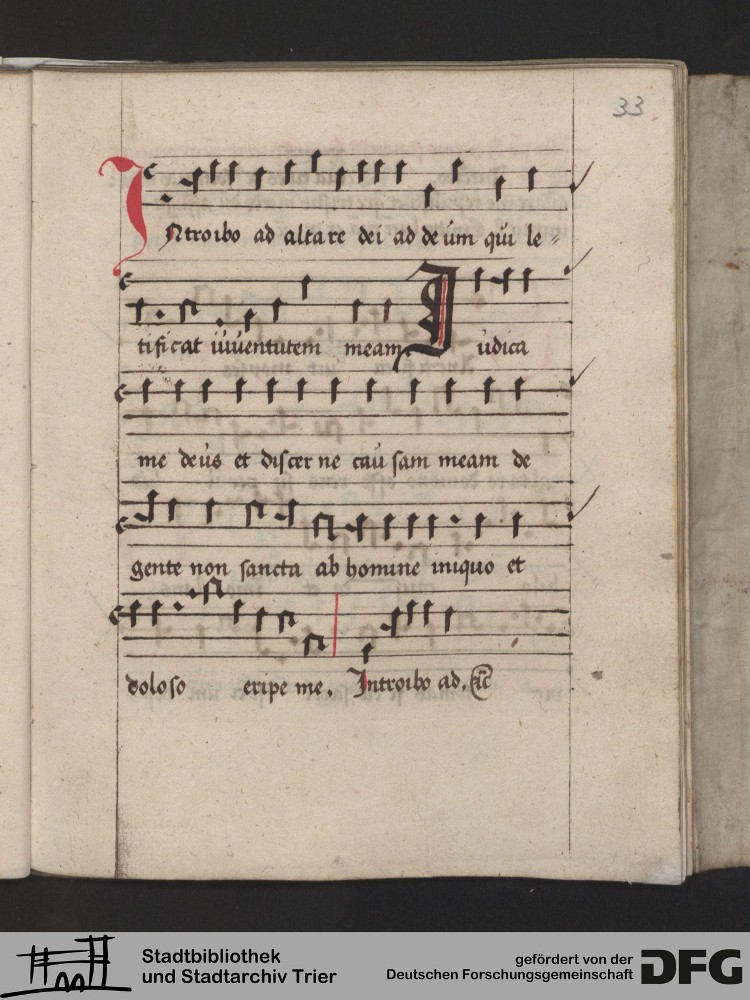 33
INtroibo ad altare dei ad deum qui le=
tificat iuuentutem meam. Iudica
me deus et discerne causam meam de
gente non sancta ab homine iniquo et
doloso eripe me. Introibo ad.
Stadtbibliothek
und Stadtarchiv Trier
gefördert von der
Deutschen Forschungsgemeinschaft
DFG